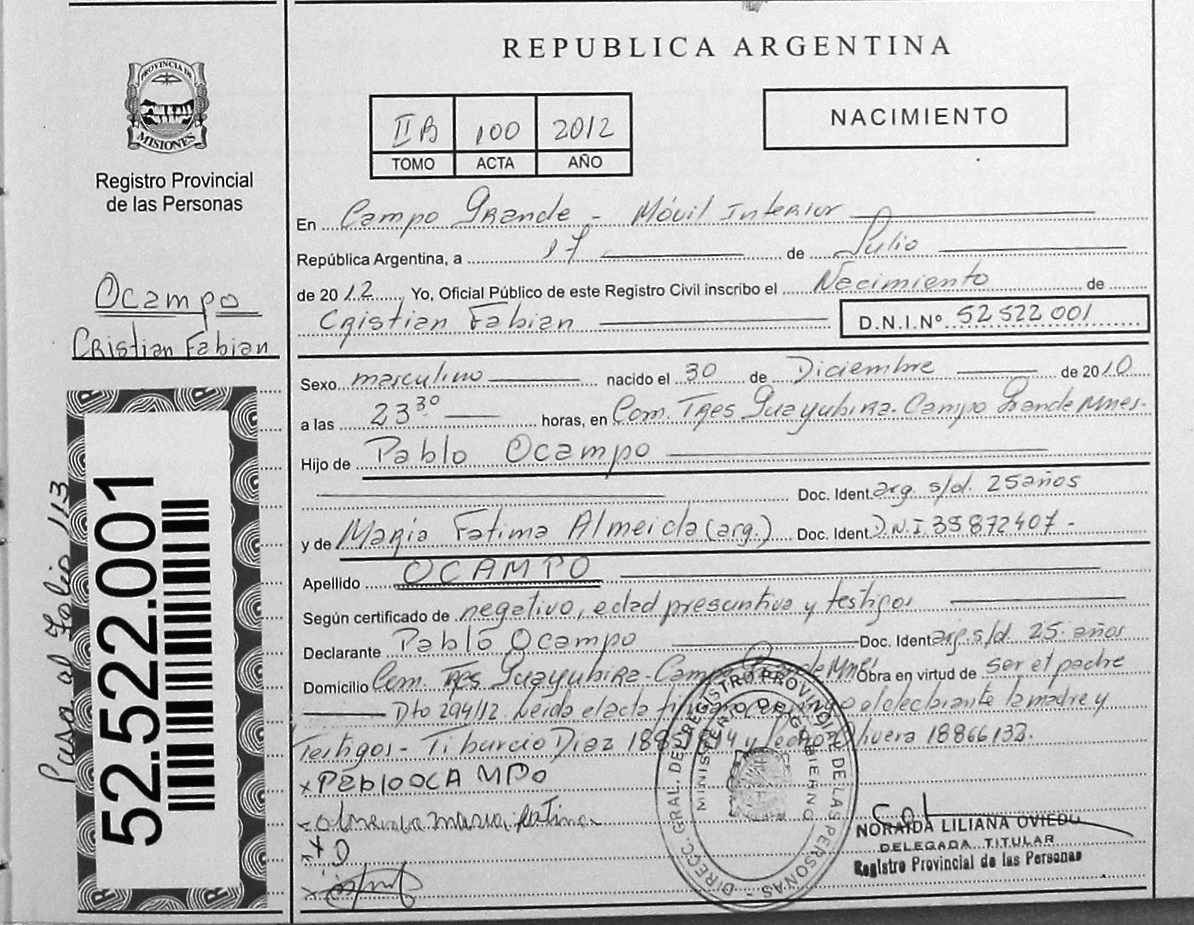 REPUBLICA ARGENTINA
PROVINCIA DE
MISIONES
Registro Provincial
de las Personas
II B 100 2012
TOMO ACTA AÑO
NACIMIENTO
Ocampo
Cristian Fabian
Pasa al Folio 113
52.522.001
En Campo Grande - Móvil Interior
República Argentina, a 17 de Julio
de 2012 Yo, Oficial Público de este Registro Civil inscribo el Nacimiento de
Cristian Fabian D.N.I.Nº 52 522 001
Sexo masculino nacido el 30 de Diciembre de 2010
a las 23 30 horas, en Com. Tres Guayubira - Campo Grande Mnes.
Hijo de Pablo Ocampo
Doc. Ident. arg. s/d. 25 años
y de Maria Fatima Almeida (arg.) Doc. Ident. D.N.I. 35872407 -
Apellido OCAMPO
Según certificado de negativo, edad presuntiva y testigos
Declarante Pablo Ocampo Doc. Ident. arg. s/d. 25 años
Domicilio Com. Tres Guayubira - Campo Grande Mnes Obra en virtud de ser el padre
Dto 294/12. Leida el acta el declarante la madre y
Testigos - Tiburcio Diaz y 18866132.
x Pablo OCAMPO
x almeida maria fatima
x
x
DIRECC. GRAL. DEL REGISTRO PROVINCIAL DE LAS PERSONAS
MINISTERIO DE GOBIERNO
NORAIDA LILIANA OVIEDO
DELEGADA TITULAR
Registro Provincial de las Personas